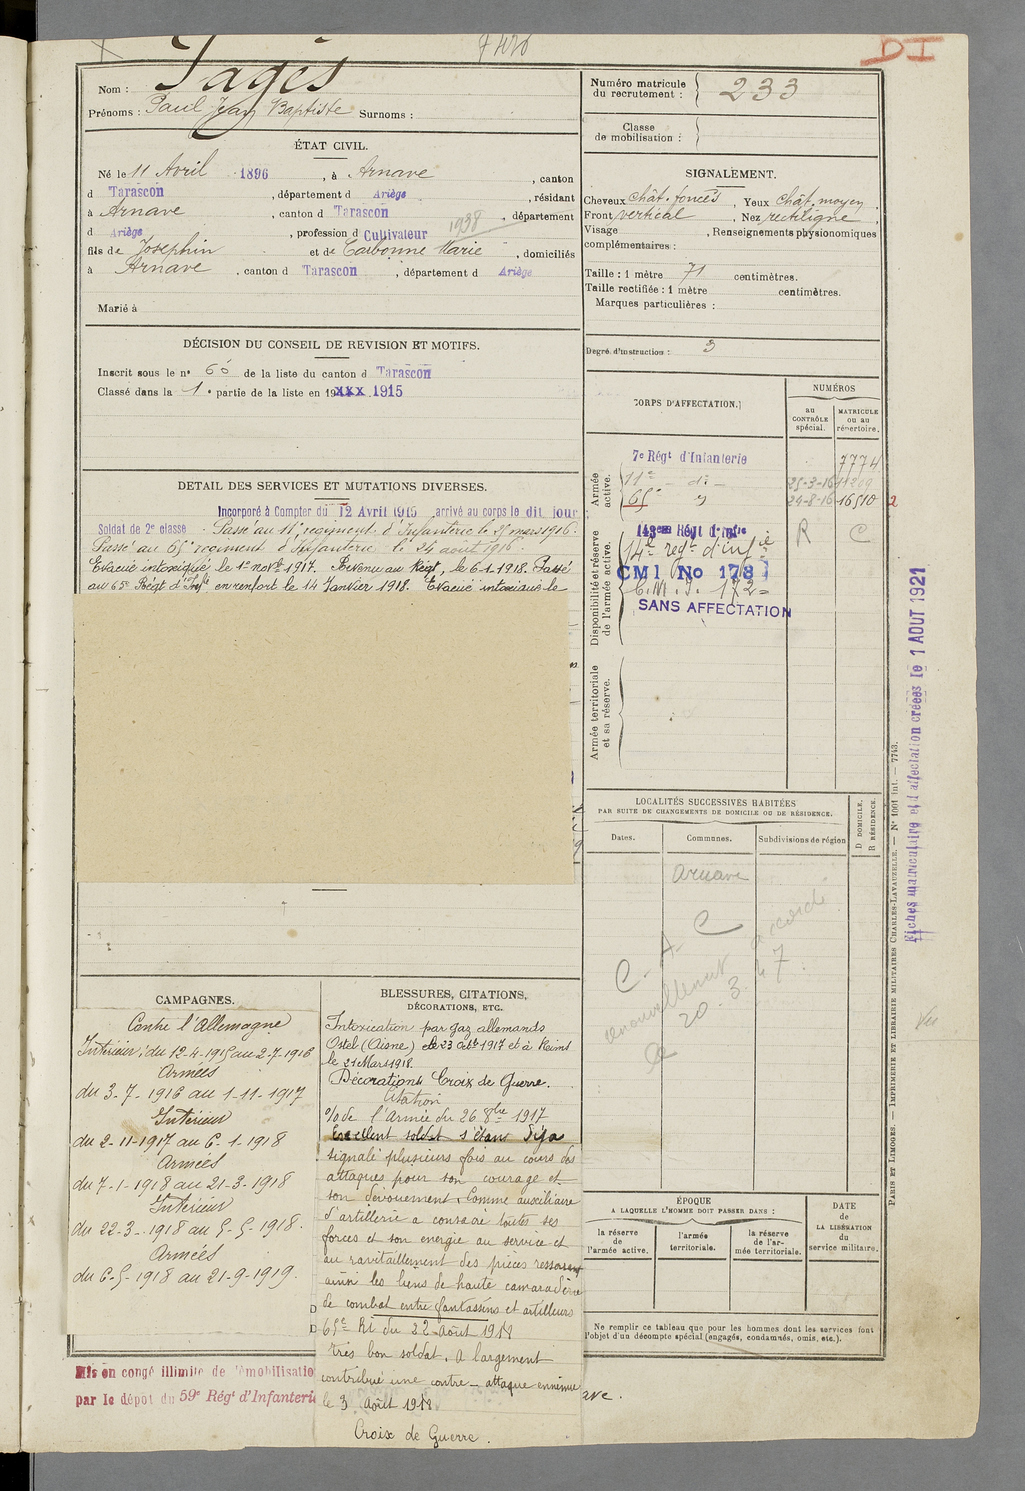 7420
DI
Nom : Pagès
Prénoms : Paul Jean Baptiste Surnoms :
ÉTAT CIVIL.
Né le 11 Avril 1896, à Arnave, canton
d Tarascon, département d Ariège, résidant
à Arnave, canton d Tarascon, département
1938
d Ariège, profession d Cultivateur
fils de Josephin et de Carbonne Marie, domiciliés
à Arnave, canton d Tarascon, département d Ariège
Marié à
DÉCISION DU CONSEIL DE REVISION ET MOTIFS.
Inscrit sous le n° 60 de la liste du canton d Tarascon
Classé dans la 1e partie de la liste en 19xxx 1915
DETAIL DES SERVICES ET MUTATIONS DIVERSES.
Incorporé à Compter du 12 Avril 1915 arrivé au corps le dit jour
Soldat de 2e classe Passé au 11e régiment d'Infanterie le 25 mars 1916.
Passé au 65e régiment d'Infanterie le 24 août 1916.
Evacué intoxiqué le 1er novbre 1917. Revenu au Régt, le 6-1-1918. Passé
au 65e Régt d'Inftie en renfort le 14 Janvier 1918. Evacué intoxiqué le
CAMPAGNES.
Contre l'Allemagne
Intérieur, du 12-4-1915 au 2-7-1916
Armées
du 3-7-1916 au 1-11-1917
Intérieur
du 2-11-1917 au 6-1-1918
Armées
du 7-1-1918 au 21-3-1918
Intérieur
du 22-3-1918 au 5-5-1918.
Armées
du 6-5-1918 au 21-9-1919.
BLESSURES, CITATIONS,
DÉCORATIONS, ETC.
Intoxication par gaz allemands
Ostel (Aisne) le 23 Octb 1917 et à Reims
le 21 Mars 1918.
Décorations Croix de Guerre.
Citation
% de l'Armée du 26 8bre 1917
Excellent soldat s'étant déjà
signalé plusieurs fois au cours des
attaques pour son courage et
son dévouement. Comme auxiliaire
d'artillerie a consacré toutes ses
forces et son energie au service et
au ravitaillement des pièces resserrant
ainsi les liens de haute camaraderie
de combat entre fantassins et artilleurs
65e RI du 22 août 1918
très bon soldat. A largement
contribué une contre-attaque ennemie
le 3 août 1918
Croix de Guerre.
Mis en congé illimité de démobilisatio
par le dépôt du 59e Régt d'Infanterie
ave.
Numéro matricule
du recrutement : 233
Classe
de mobilisation :
SIGNALEMENT.
Cheveux chât. foncés, Yeux chât. moyen.
Front vertical, Nez rectiligne
Visage, Renseignements physionomiques
complémentaires :
Taille : 1 mètre 71 centimètres.
Taille rectifiée : 1 mètre centimètres.
Marques particulières :
Degré d'instruction : 3
CORPS D'AFFECTATION.
NUMÉROS
au
CONTRÔLE
spécial.
MATRICULE
ou au
répertoire.
Armée
active.
7e Régt d'Infanterie 7774
11e - di - 25-3-16
65e 24-8-16 16510
2
Disponibilité et réserve
de l'armée active.
R C
14e regt d'infie
CMI No 178
C.M.I. 172
SANS AFFECTATION
Armée territoriale
et sa réserve.
LOCALITÉS SUCCESSIVES HABITÉES
PAR SUITE DE CHANGEMENTS DE DOMICILE OU DE RÉSIDENCE.
Dates.
Communes.
Subdivisions de région
D DOMICILE.
R RÉSIDENCE.
Arnave
C.A.C
renouvellement accordé
20.3.47
ÉPOQUE
A LAQUELLE L'HOMME DOIT PASSER DANS :
la réserve
de
l'armée active.
l'armée
territoriale.
la réserve
de l'ar-
mée territoriale.
DATE
de
LA LIBÉRATION
du
service militaire.
Ne remplir ce tableau que pour les hommes dont les services font
l'objet d'un décompte spécial (engagés, condamnés, omis, etc.).
PARIS ET LIMOGES. — IMPRIMERIE ET LIBRAIRIE MILITAIRES CHARLES-LAVAUZELLE. — N° 1001 int. — 7743.
Fiches matriculaire et d'affectation créées le 1 AOUT 1921
Vu